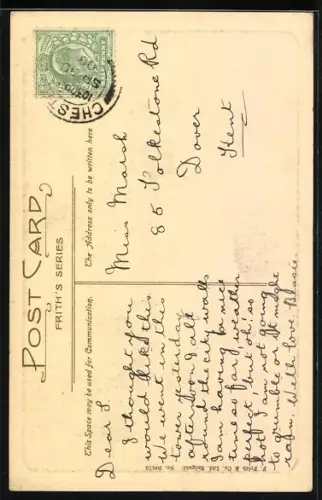 POST CARD
FRITH'S SERIES
This Space may be used for Communication.
The Address only to be written here
CHEST
Dear L
I thought you
would like this.
We went in this
tower yesterday
afternoon & all
round the city walls
I am having a nice
time so far weather
perfect but oh! so
hot I am not going
to grumble or it might
rain. With love Bessie
Miss Marsh
85 Folkestone Rd
Dover
Kent
F. Frith & Co. Ltd. Reigate. No.